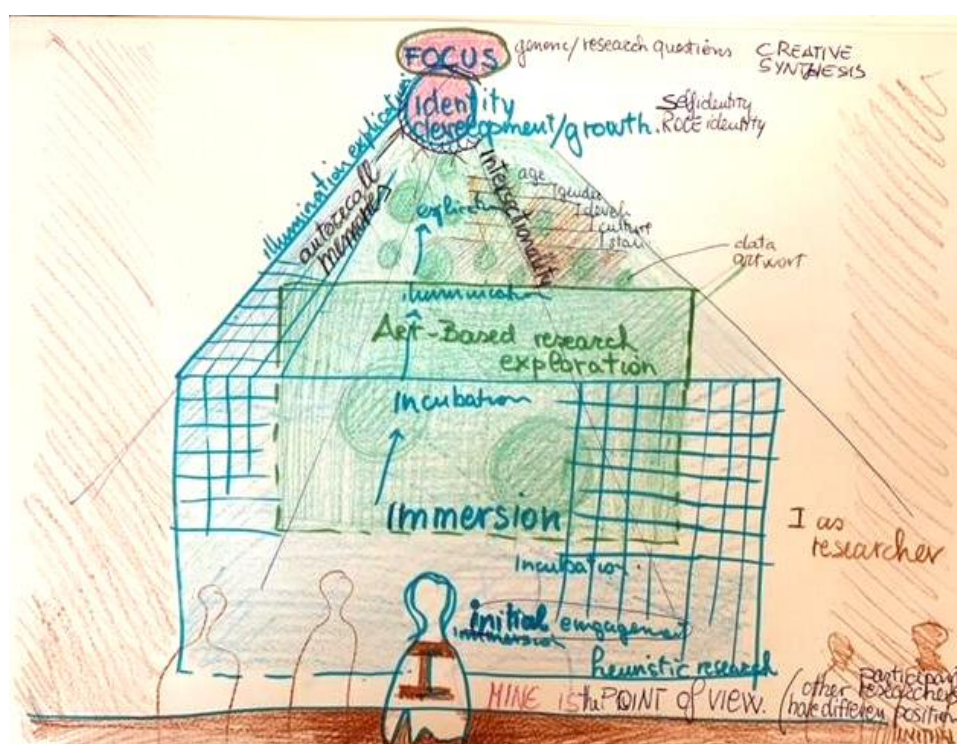 FOCUS
generic/research questions
CREATIVE
SYNTHESIS
Identity
development/growth.
Self identity
ROLE identity
illumination explication
autorecall
memories
Intersectionality
age
gender
culture
explication
data
artwort
illumination
Art-Based research
exploration
Incubation
Immersion
I as
researcher
Incubation.
initial engagement
immersion
heuristic research
MINE is the POINT OF VIEW.
participant
(other researchers
have different position